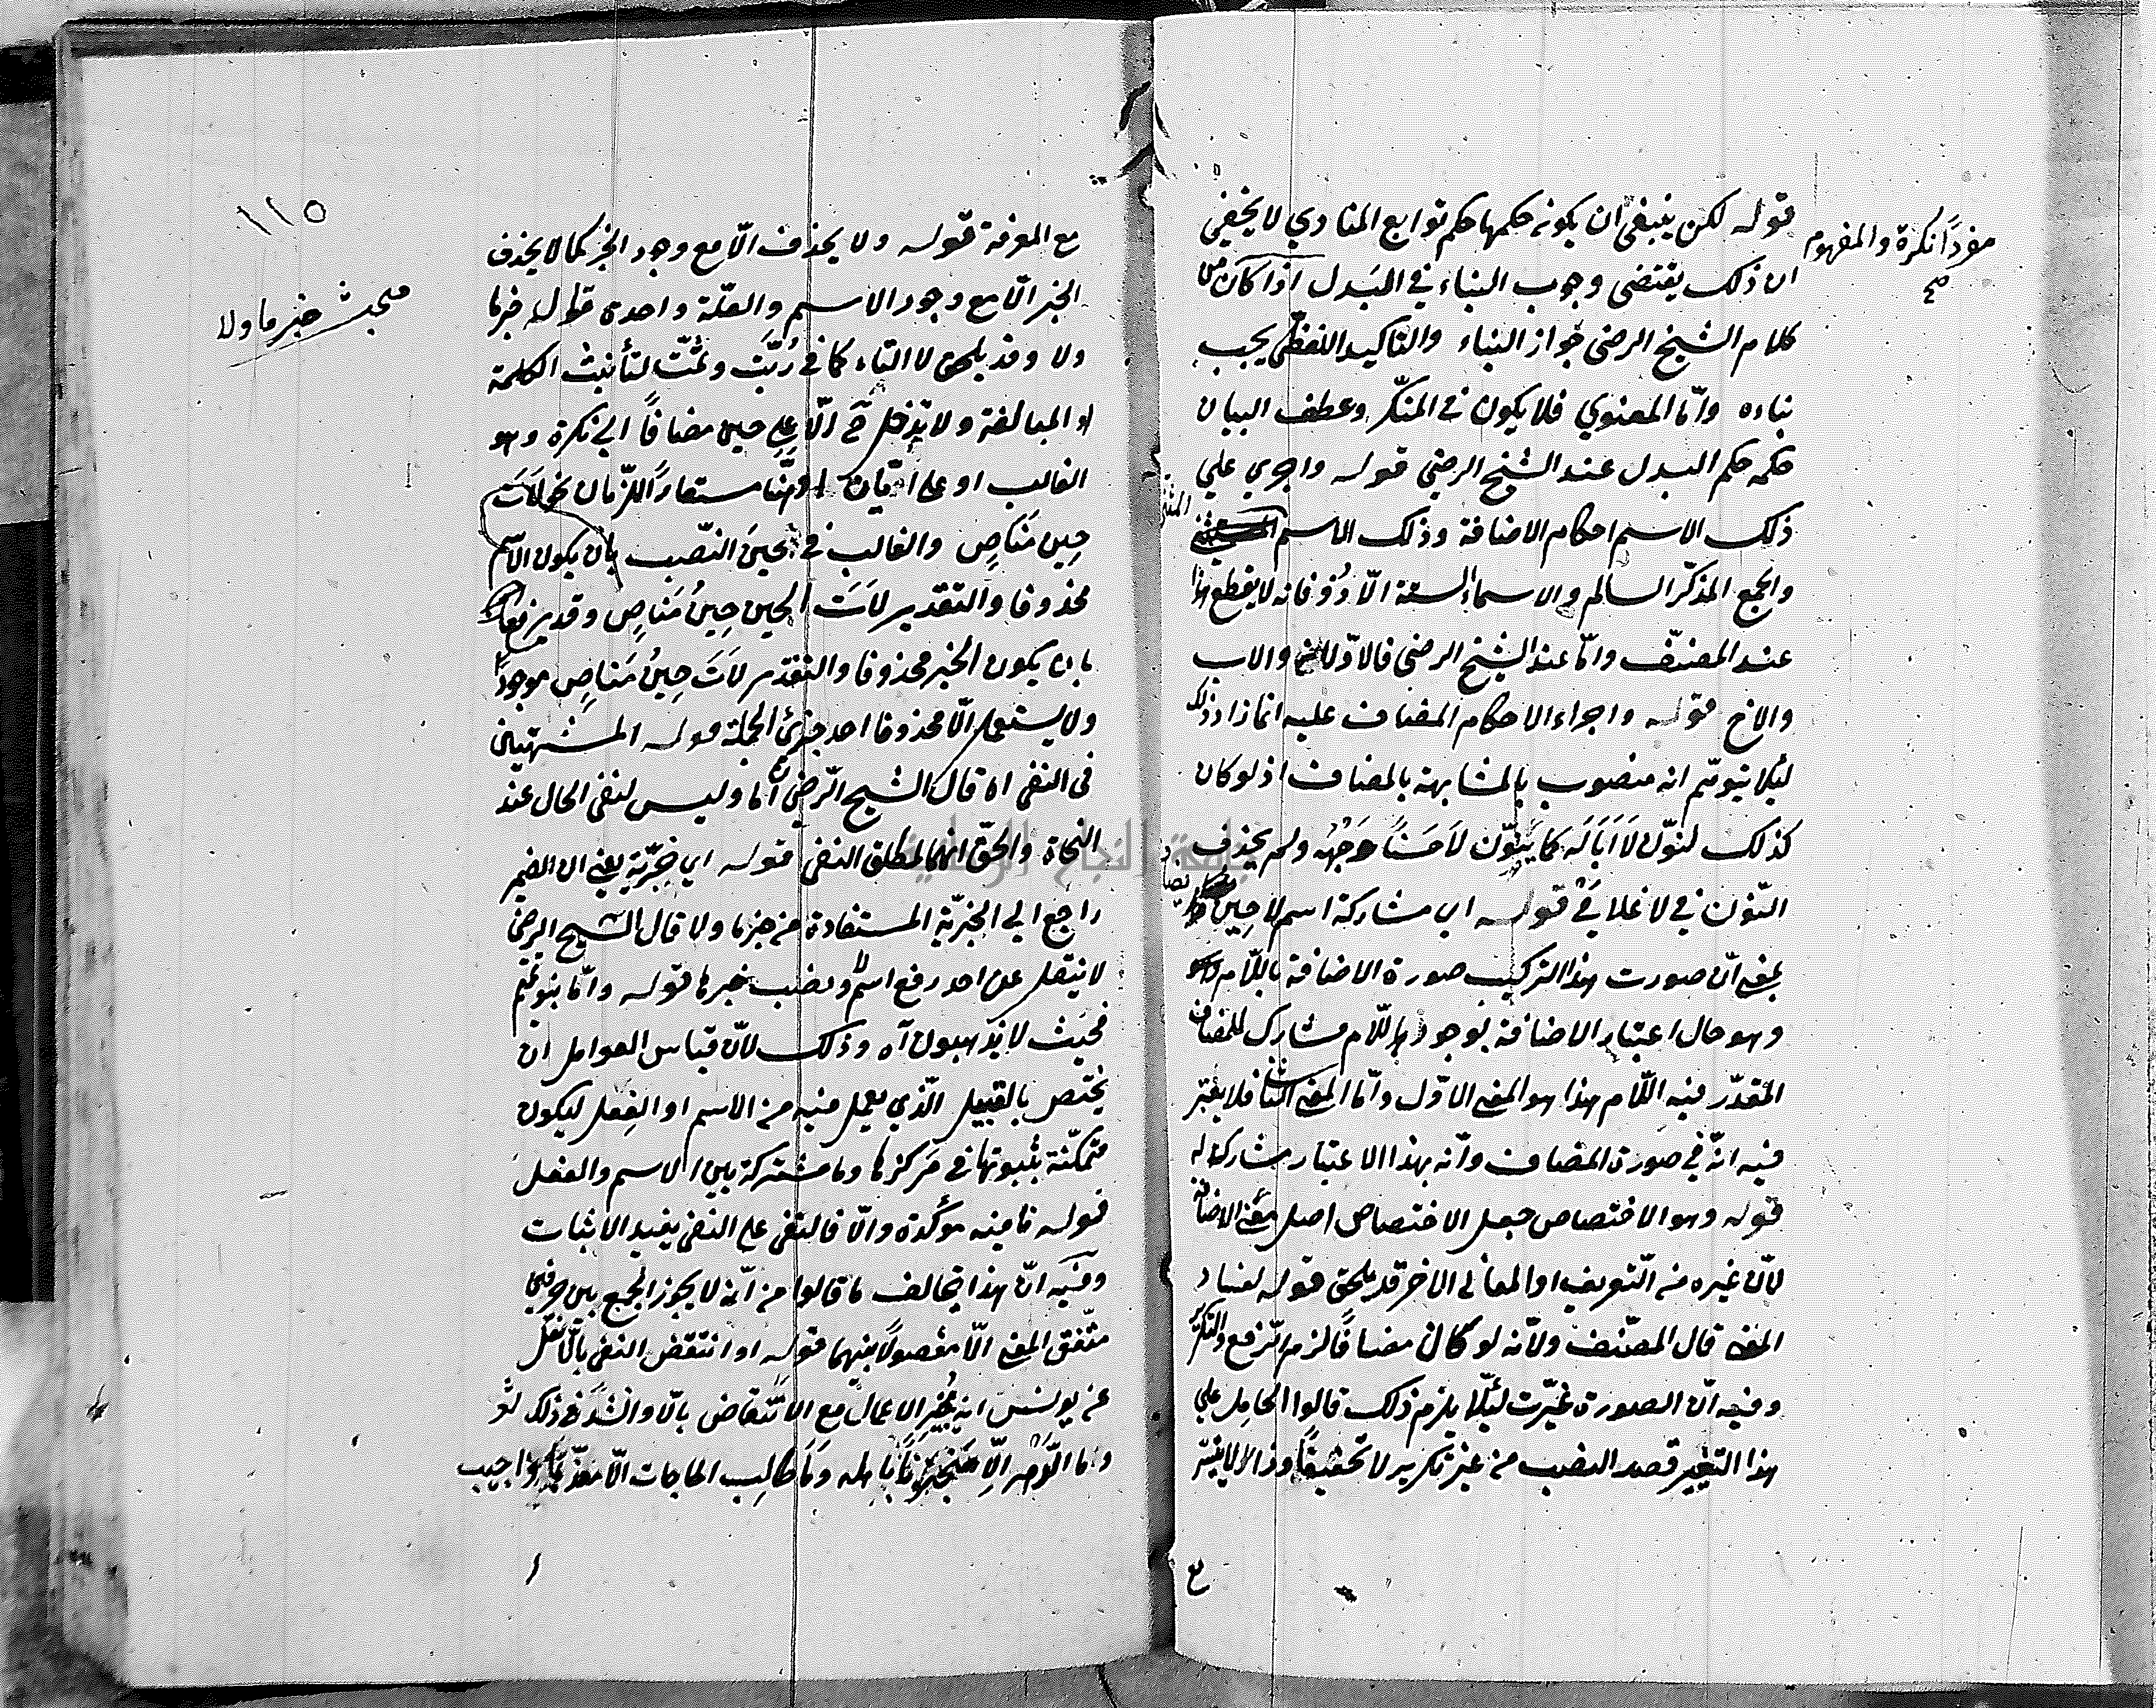 قوله لكن ينبغي ان يكون حكمها حكم توابع المنادي لا يخفي
مفرداً نكرة والمفهوم من
صح
ان ذلك يقتضى وجوب البناء في البدل اذا كان
كلام الشيخ الرضى جواز البناء والتاكيد اللفظى يجب
بناءه وامّا المعنوي فلا يكون في المنكّر وعطف البيان
حكمه حكم البدل عند الشيخ الرضي قوله واجري علي
ذلك الاسم احكام الاضافة وذلك الاسم المثنى
والجمع المذكّر السالم والاسماء الستة الّا ذُو فانه لا يقطع هذا
عند المصنّف وامّا عند الشيخ الرضى فالاوّلان والاب
والاخ قوله واجراء الاحكام المضاف عليه انما زاد ذلك
لئلا يتوهّم انه منصوب بالمشابهة بالمضاف اذ لو كان
كذلك لنوّن لَا اَبَاَ لَه كما يُنوّن لَا حَسَناً وَجْهُه ولم يحذف
النّون في لا غلامَيْ قوله اي مشاركة اسم لا حين
بمعنى انّ صورت هذا التركيب صورة الاضافة باللّام
وهو حال اعتبار الاضافة بوجود اللّام مشارك للمضاف
المقدّر فيه اللّام هذا هو المعنى الاوّل وامّا المعنى الثانى فلا يعتبر
فيه انّه في صورة المضاف وانّه بهذا الاعتبار مشاركة له
قوله وهو الاختصاص جعل الاختصاص اصل معنى الاضافة
لانّ غيره من التّعريف او المعانى الاخر قد يلحق قوله لفساد
المعنى قال المصنّف ولانّه لو كان مضافاً لزم الرّفع والتكرير
وفيه انّ الصورة غيّرت لئلّا يلزم ذلك قالوا الحامل علي
هذا التغيير قصد النصب من غير تكرير لا تخفيفاً
مع
١١٥
مع المعرفة قوله ولا يحذف الّا مع وجود الخبر كما لا يحذف
الخبر الّا مع وجود الاسم والعلّة واحدة قوله خبر ما
مبحث خبر ما ولا
ولا وقد يلحق لا التاء كما في رُبّت وثمّت لتأنيث الكلمة
او المبالغة ولا تدخل ح الّا على حين مضافاً الي نكرة وهو
الغالب او على ايّان او هنّا مستعاراً للزّمان نحو لَاتَ
حِينَ مَنَاصٍ والغالب في حين النّصب بان يكون الاسم
محذوفا والتقدير لَاتَ الحين حِينَ مَنَاصٍ وقد يرفع
بان يكون الخبر محذوفا والتقدير لَاتَ حِينُ مَنَاصٍ موجوداً
ولا يستعمل الّا محذوفا احد جزئي الجملة قوله المشبّهتين
في النفى اه قال الشيخ الرّضيّ انّ ما وليس لنفى الحال عند
النحاة والحقّ انهما لمطلق النفى قوله اي خبريّة يعني ان الضمير
راجع الي الخبريّة المستفادة من خبر ما ولا قال الشيخ الرضى
لا ينقل عن احد رفع اسم لا ونصب خبرها قوله وامّا بنو تميم
فحيث لا يذهبون آه وذلك لانّ قياس العوامل ان
يختص بالقبيل الّذي يعمل فيه من الاسم او الفِعل ليكون
متمكّنة بثبوتها في مَركزها وما مشتركة بين الاسم والفعل
قوله نافية مؤكّدة والّا فالنفى على النفى يفيد الاثبات
وفيه انّ هذا يخالف ما قالوا من انّه لا يجوز الجمع بين حرفي
متّفق المعنى الّا مفصولًا بينهما قوله او انتقض النفى بالّا نقل
عن يونس انه يجيز الاعمال مع الانتقاض بالّا وانشد في ذلك
وما الدّهر الّا منجنوناً باهله وَمَا طَالِب الحاجات الّا معذّبا واجيب